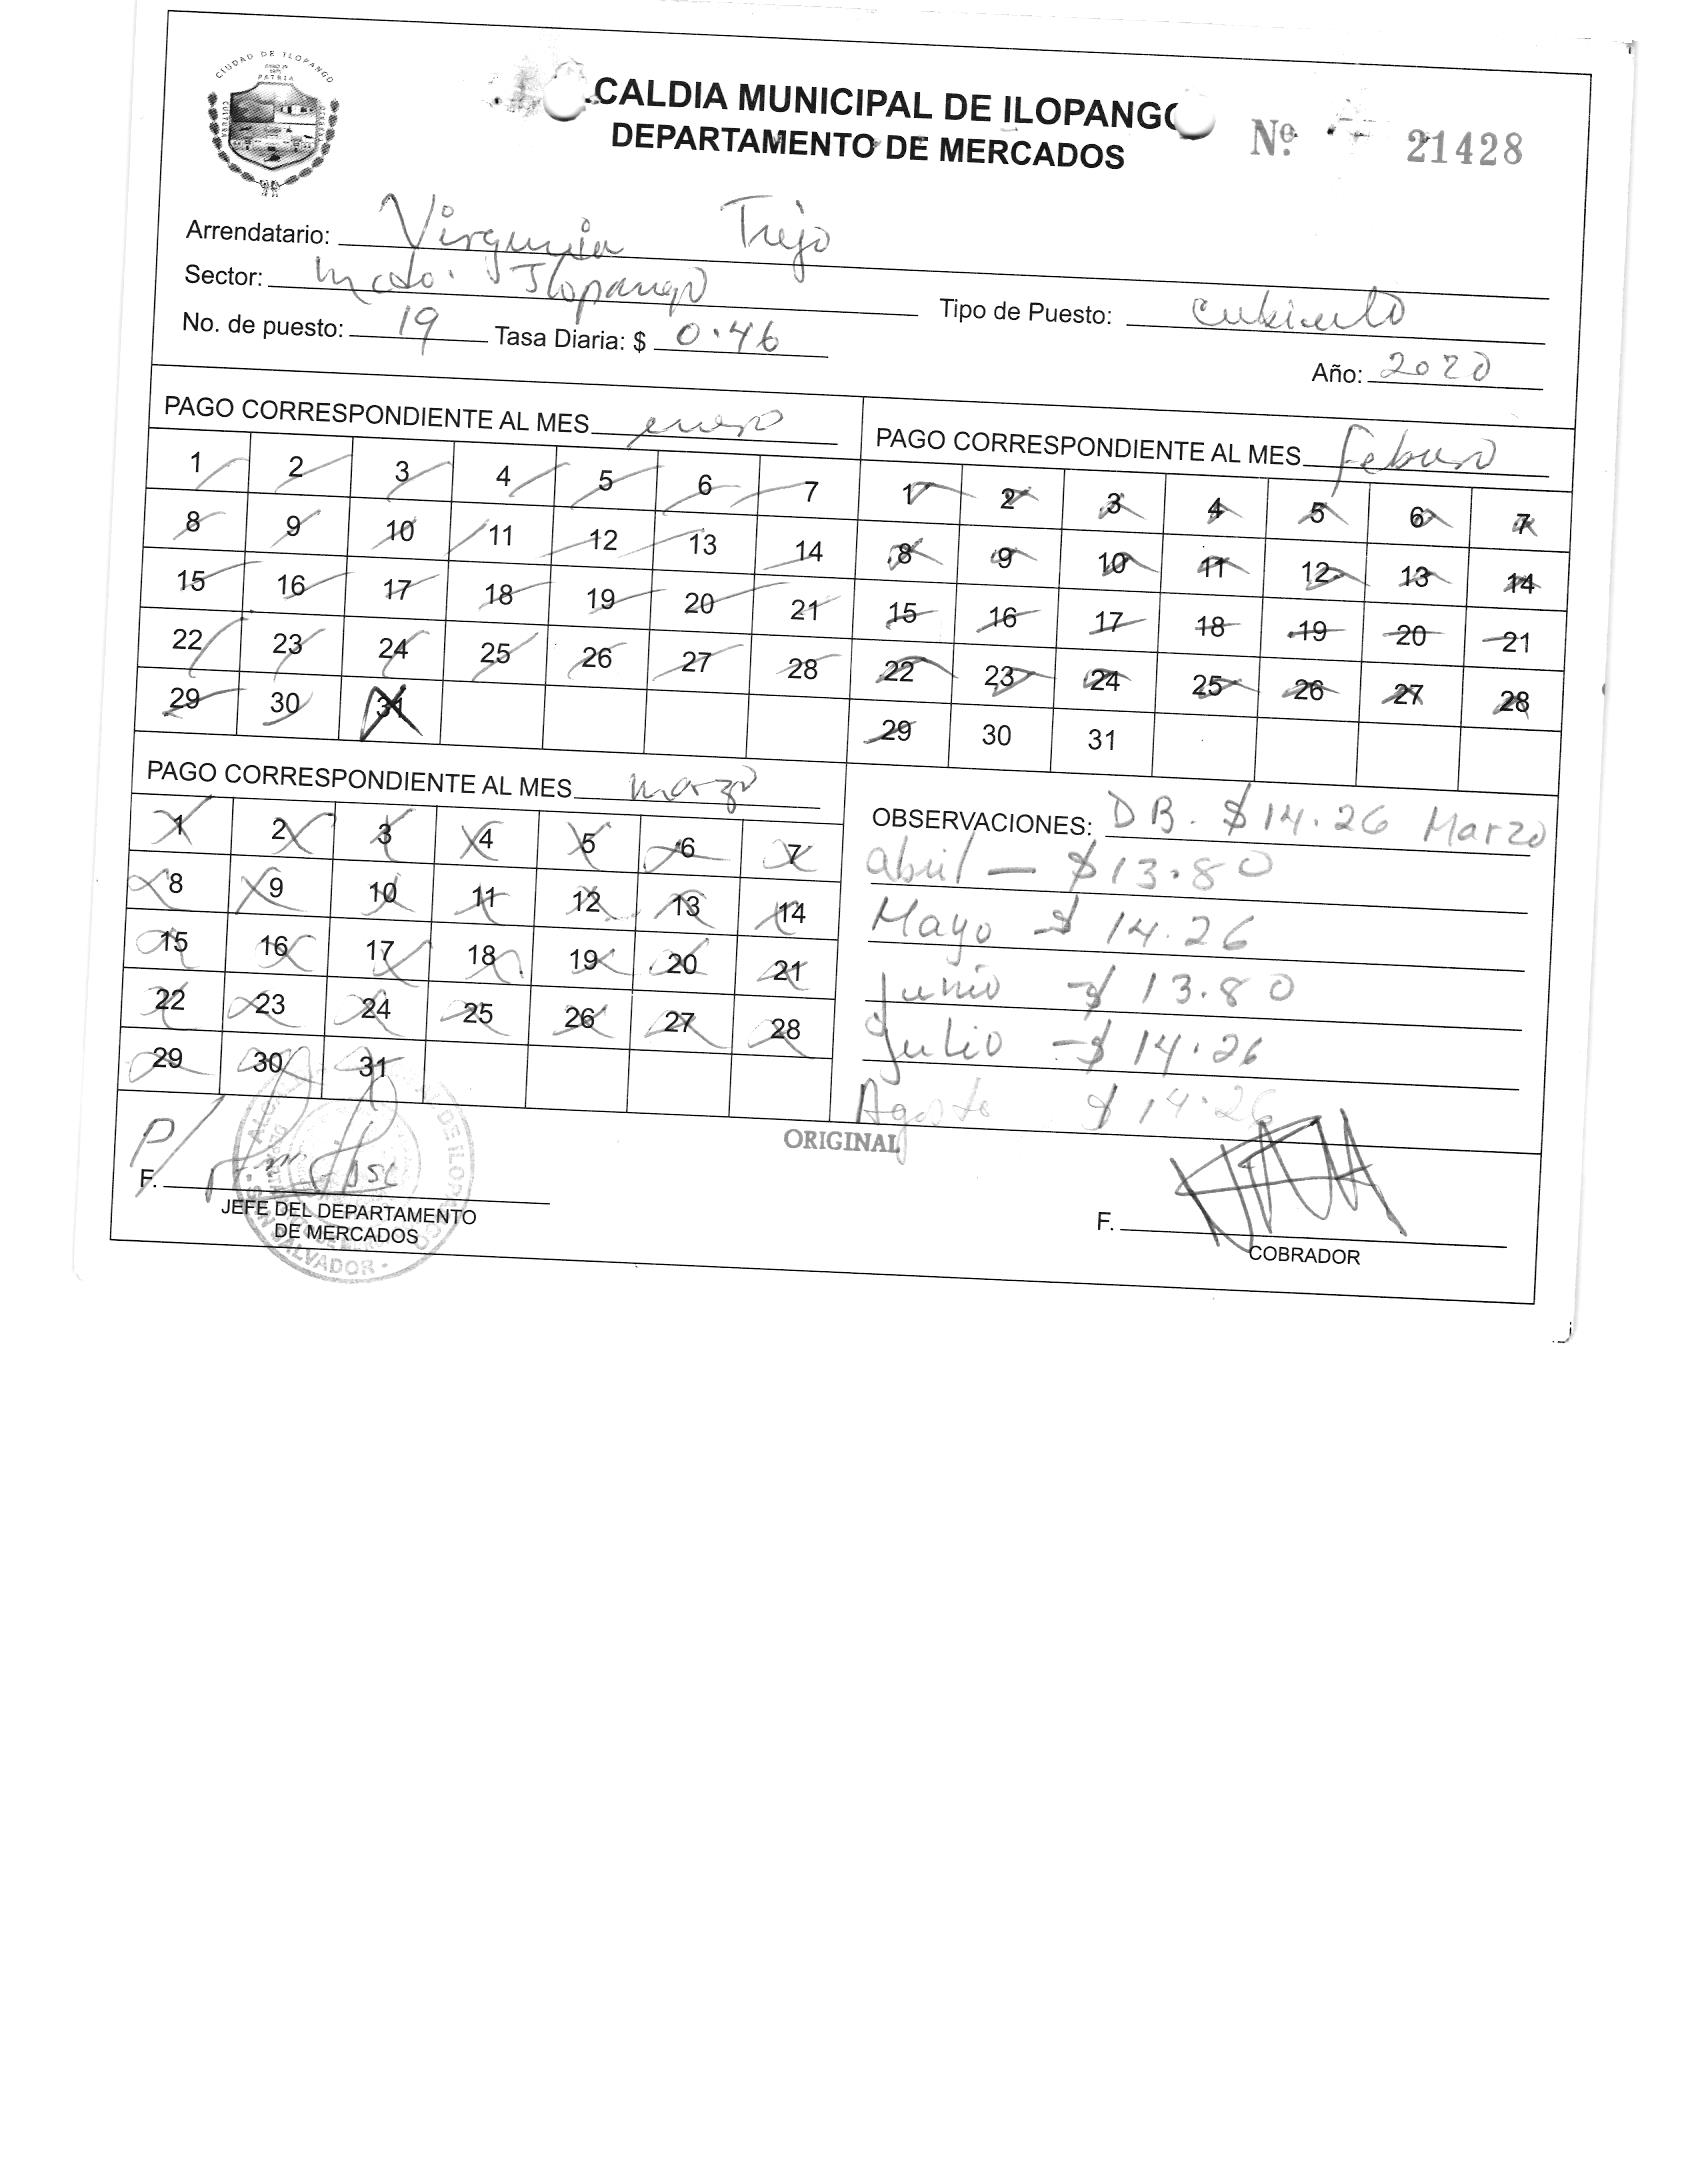 CIUDAD DE ILOPANGO
PATRIA
CULTURA
CALDIA MUNICIPAL DE ILOPANGO
DEPARTAMENTO DE MERCADOS
Nº. 21428
Arrendatario: Virginia Trejo
Sector: Mcdo. Ilopango
Tipo de Puesto: cubierto
No. de puesto: 19 Tasa Diaria: $ 0.46
Año: 2020
PAGO CORRESPONDIENTE AL MES enero
1 2 3 4 5 6 7
8 9 10 11 12 13 14
15 16 17 18 19 20 21
22 23 24 25 26 27 28
29 30 31
PAGO CORRESPONDIENTE AL MES febrero
1 2 3 4 5 6 7
8 9 10 11 12 13 14
15 16 17 18 19 20 21
22 23 24 25 26 27 28
29 30 31
PAGO CORRESPONDIENTE AL MES marzo
1 2 3 4 5 6 7
8 9 10 11 12 13 14
15 16 17 18 19 20 21
22 23 24 25 26 27 28
29 30 31
OBSERVACIONES: DB. $14.26 Marzo
abril — $13.80
Mayo - $ 14.26
Junio - $ 13.80
Julio - $ 14.26
Agosto $ 14.26
ORIGINAL
P/
F.
JEFE DEL DEPARTAMENTO
DE MERCADOS
DE ILOPANGO
SAN SALVADOR
F.
COBRADOR